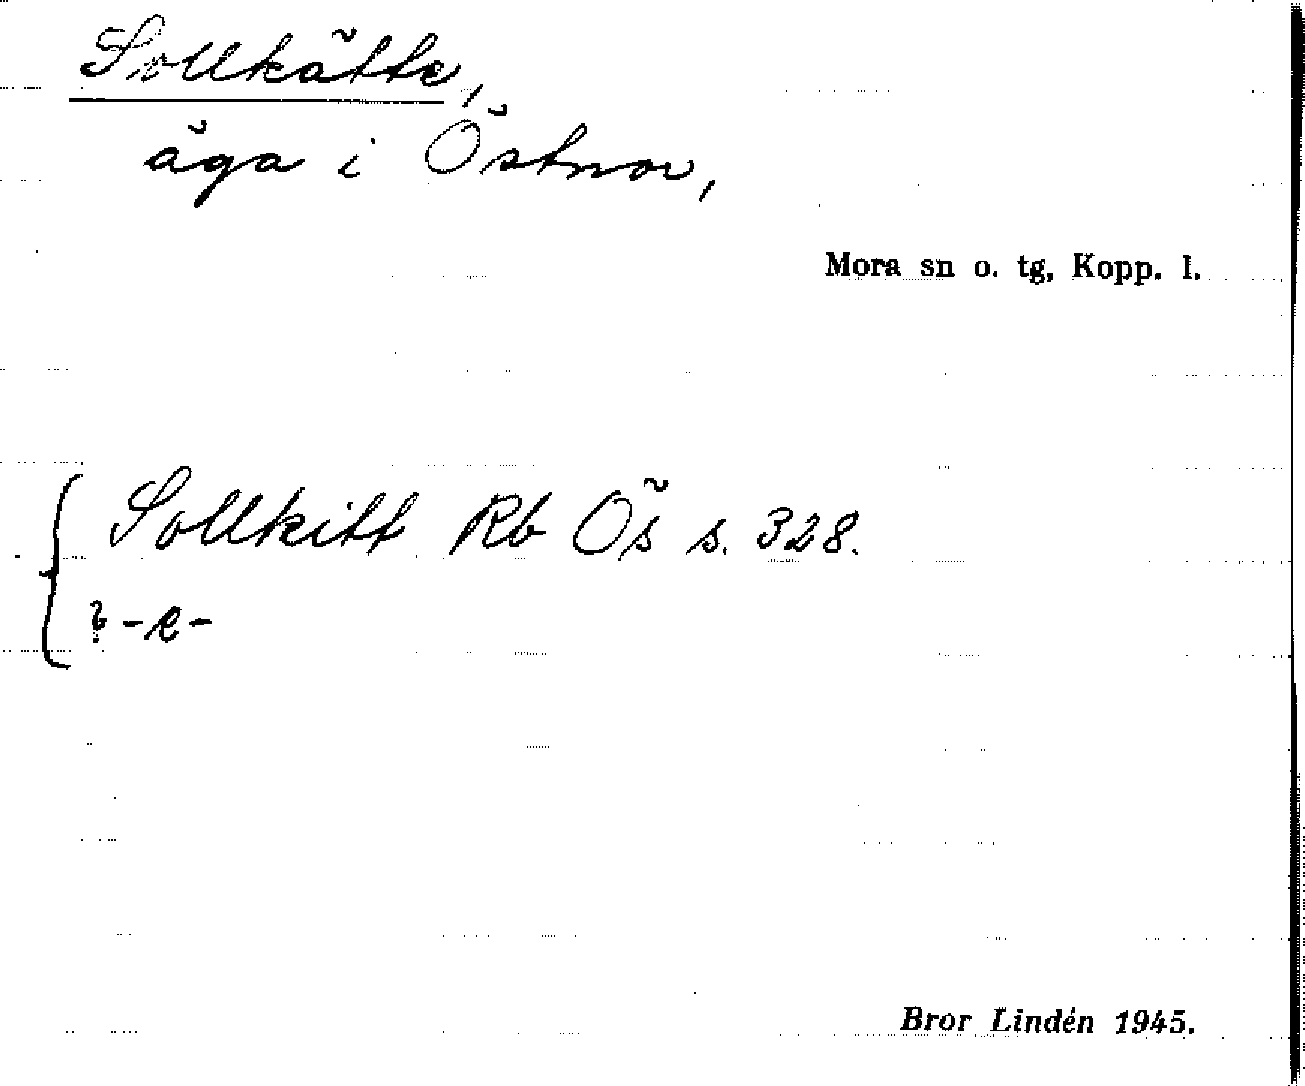 Sollkätte,
äga i Östnor,
Mora sn o. tg, Kopp. l.
Sollkitt Rb Ös s. 328.
? -e-
Bror Lindén 1945.